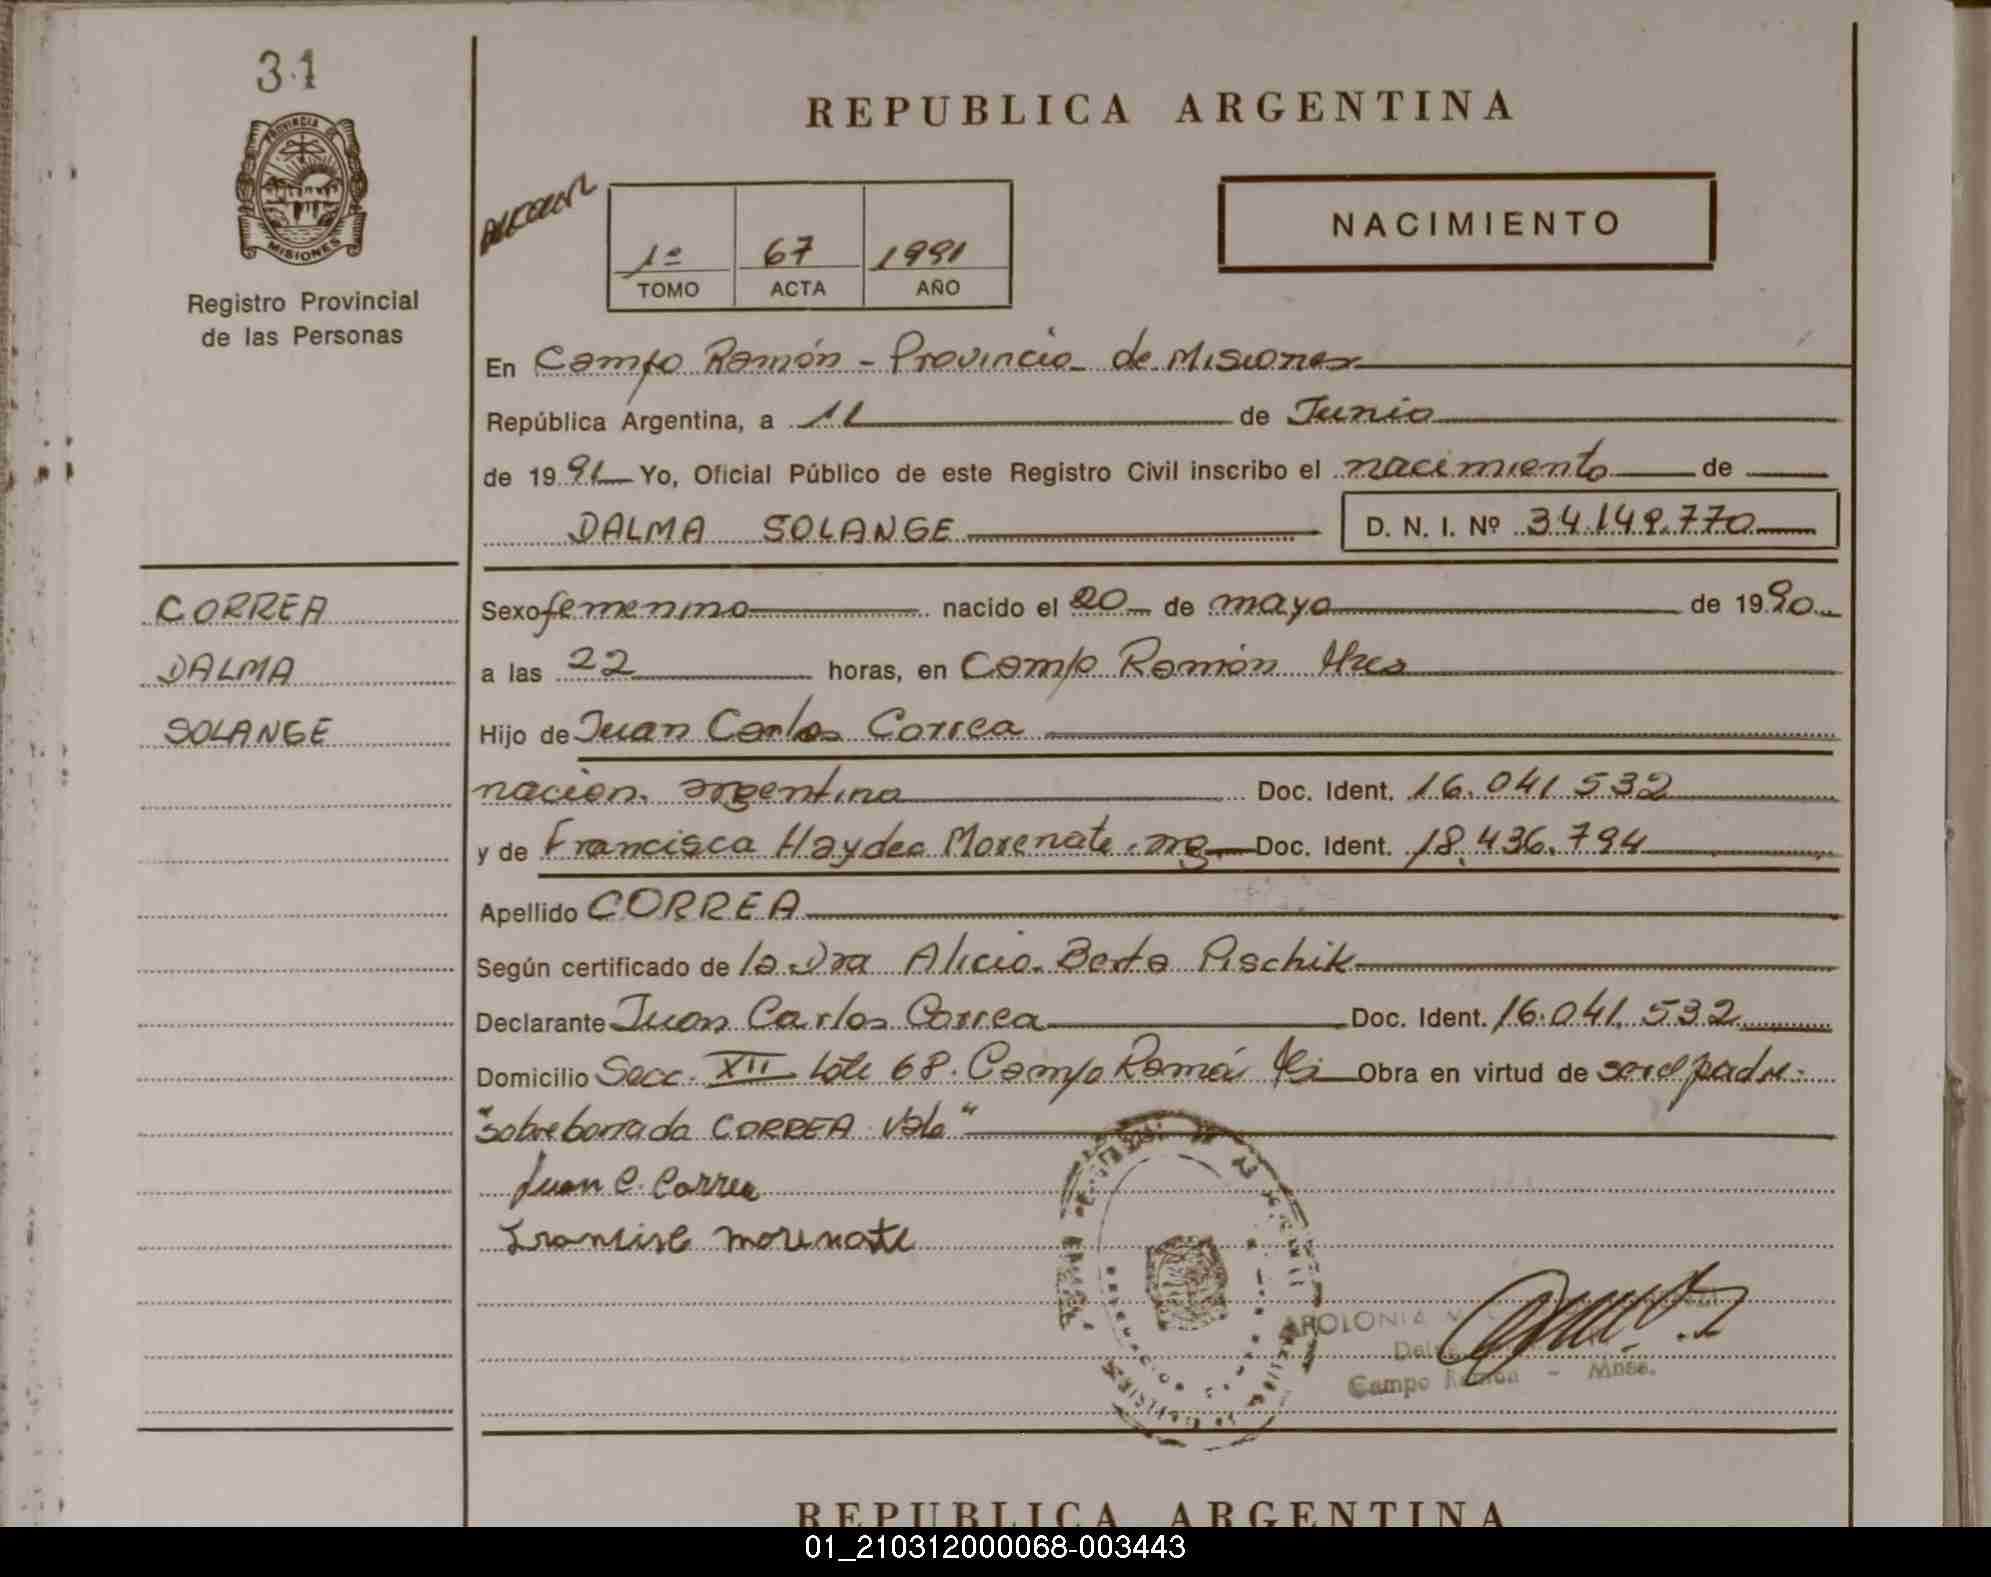 31
PROVINCIA DE
MISIONES
Registro Provincial
de las Personas
REPUBLICA ARGENTINA
1º 67 1991
TOMO ACTA AÑO
NACIMIENTO
En Campo Ramón - Provincia de Misiones
República Argentina, a 11 de Junio
de 1991 Yo, Oficial Público de este Registro Civil inscribo el nacimiento de
DALMA SOLANGE D. N. I. Nº 34.149.770
CORREA
DALMA
SOLANGE
Sexo femenino nacido el 20 de mayo de 1990
a las 22 horas, en Campo Ramón Mnes
Hijo de Juan Carlos Correa
nacion. argentina Doc. Ident. 16.041.532
y de Francisca Haydee Morenate. arg Doc. Ident. 18.436.794
Apellido CORREA
Según certificado de la Dra Alicia Berta Pischik
Declarante Juan Carlos Correa Doc. Ident. 16.041.532
Domicilio Secc. XII Lote 68. Campo Ramón Obra en virtud de ser el padre.
"Sobreborrado CORREA Vale"
Juan C. Correa
Francisca Morenate
APOLONIA
Campo Ramón - Mnes.
REPUBLICA ARGENTINA
01_210312000068-003443